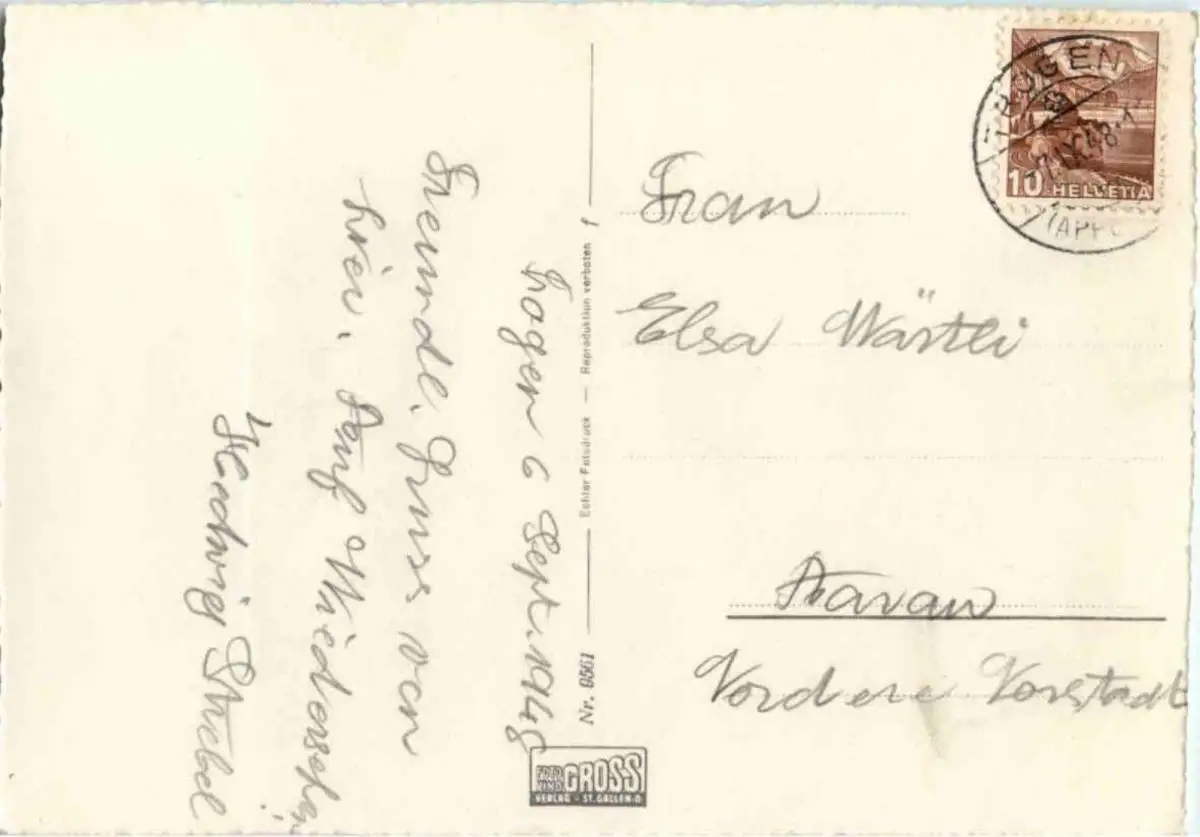 Trogen 6 Sept. 1948
Freundl. Gruss von
hier. Auf Wiedersehn!
Hardwig Strebel
Echter Fotodruck — Reproduktion verboten
Nr. 9561
FOTO UND GROSS
VERLAG - ST. GALLEN-O
TROGEN
IX.48
(APPE
10 HELVETIA
Frau
Elsa Wärtli
Aarau
Vordere Vorstadt